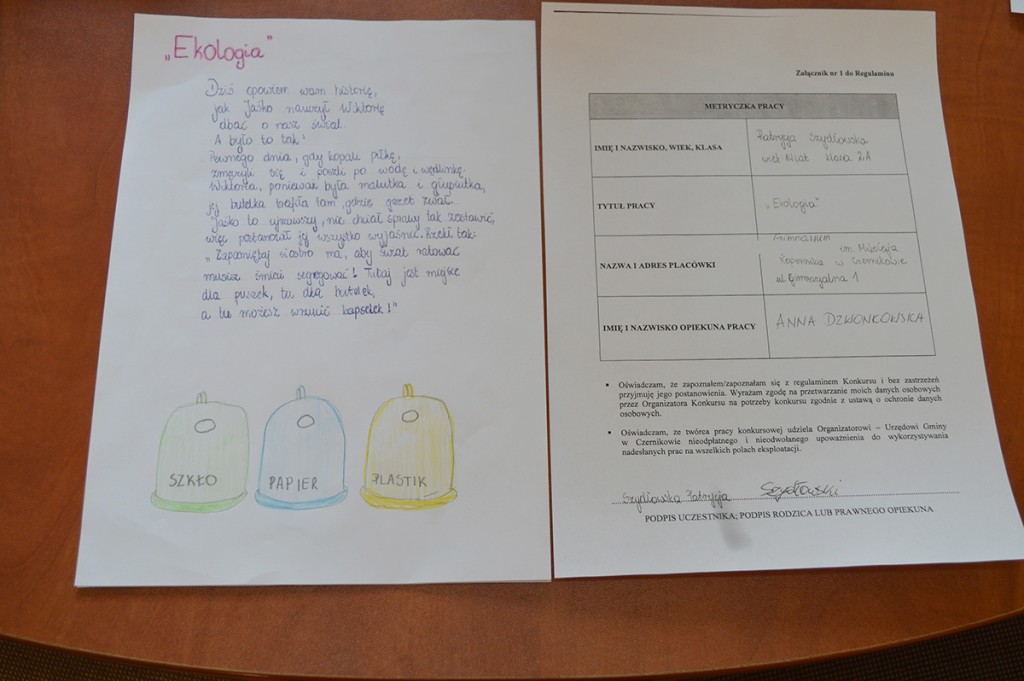 „Ekologia"
Dziś opowiem wam historię,
jak Jaśko nauczył Wiktorię
dbać o nasz świat.
A było to tak:
Pewnego dnia, gdy kopali piłkę,
zmęczyli się i poszli po wodę i wędlinkę.
Wiktoria, ponieważ była malutka i głupiutka,
jej butelka trafiła tam, gdzie gazet
Jaśko to ujrzawszy, nie chciał sprawy tak zostawić,
więc postanowił jej wszystko wyjaśnić. Rzekł tak:
„Zapamiętaj siostro ma, aby świat ratować
musisz śmieci segregować! Tutaj jest miejsce
dla puszek, tu dla butelek,
a tu możesz wrzucić kapselek!"
SZKŁO
PAPIER
PLASTIK
Załącznik nr 1 do Regulaminu
METRYCZKA PRACY
IMIĘ I NAZWISKO, WIEK, KLASA
Patrycja Szydłowska
wiek lat klasa 2A
TYTUŁ PRACY
„Ekologia"
NAZWA I ADRES PLACÓWKI
Gimnazjum
im. Mikołaja
Kopernika w Czernikowie
ul. Gimnazjalna 1
IMIĘ I NAZWISKO OPIEKUNA PRACY
ANNA DZWONKOWSKA
▪ Oświadczam, że zapoznałem/zapoznałam się z regulaminem Konkursu i bez zastrzeżeń
przyjmuję jego postanowienia. Wyrażam zgodę na przetwarzanie moich danych osobowych
przez Organizatora Konkursu na potrzeby konkursu zgodnie z ustawą o ochronie danych
osobowych.
▪ Oświadczam, że twórca pracy konkursowej udziela Organizatorowi – Urzędowi Gminy
w Czernikowie nieodpłatnego i nieodwołanego upoważnienia do wykorzystywania
nadesłanych prac na wszelkich polach eksploatacji.
Szydłowska Patrycja Szydłowski
PODPIS UCZESTNIKA; PODPIS RODZICA LUB PRAWNEGO OPIEKUNA